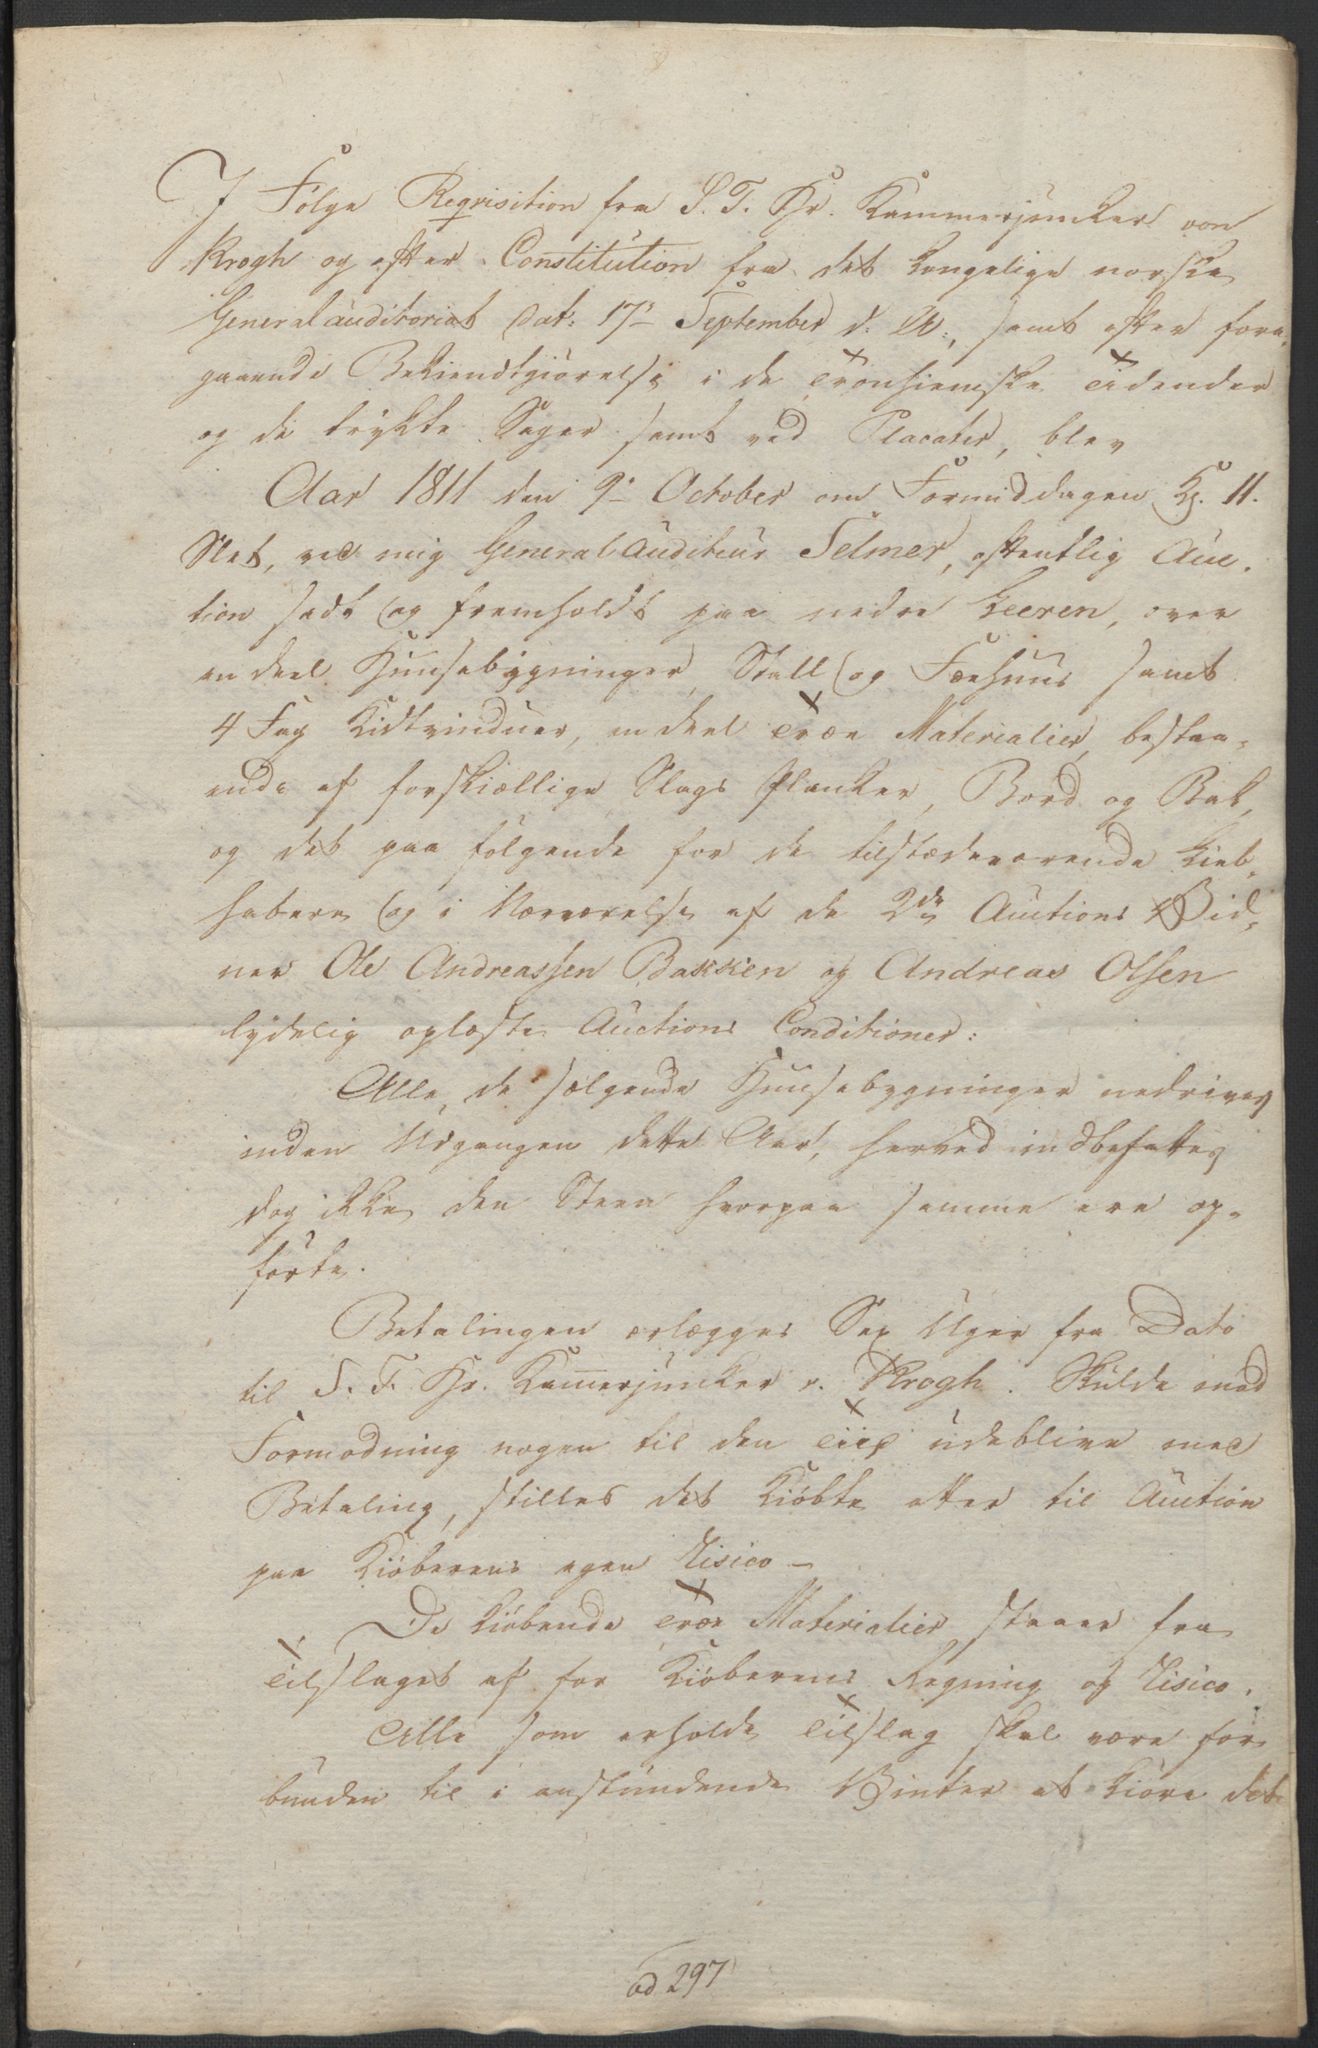 I Følge Reqvisition fra S. T. Hr. Kammerjuncker von
Krogh og efter Constitution fra det kongelige norske
Generalauditoriat dat: 17de September d. A:, samt efter fore-
gaaende Bekiendtgiørelse i de Tronhiemske Tidender
og de trykte Sager samt ved Placater, blev
Aar 1811 den 9de October om Formiddagen Kl. 11.
Slet, ved mig General Auditeur Selmer, offentlig Auc-
tion sadt og fremholdt paa nedre Leeren, over
en deel Huusebygninger, Stall og Fæehuus samt
4 Fag Kidtvinduer, en deel Træe Materialier, bestaa-
ende af forskiællige Slags Planker, Bord og Bak,
og det paa følgende for de tilstædeværende Lieb-
habere og i Nærværelse af de 2de Auctions Vid-
ner Ole Andreassen Bakken og Andreas Olsen
lydelig oplæste Auctions Conditioner:
Alle de sælgende Huusebygninger nedrives
inden Udgangen dette Aar, herved indbefattes
dog ikke den Steen hvorpaa samme ere op-
førte.
Betalingen erlægges Sex Uger fra Dato
til S. T. Hr. Kamerjunker v. Krogh. Skulde mod
Formodning nogen til den Tiid udeblive med
Betaling, stilles det Kiøbte atter til Auction
paa Kiøberens egen Risico -
De kiøbende Træe Materialier staaer fra
Tilslaget af for Kiøberens Regning og Risico.
Alle som erholde Tilslag skal være for-
bunden til i anstundende Vinter at kiøre det
ad 297